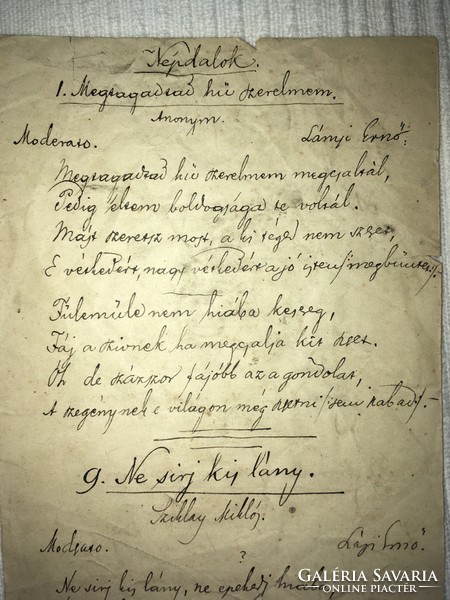 Népdalok.
1. Megtagadtad hű szerelmem.
Anonym.
Moderato. Lányi Ernő.
Megtagadtad hű szerelmem megcsaltál,
Pedig éltem boldogsága te voltál.
Mást szeretsz most, a ki téged nem szeret,
E vétkedért, nagy vétkedért a jó isten megbüntet.
Fülemüle nem hiába kesereg,
Fáj a szivnek ha megcsalja kit szeret.
Óh de százszor fájóbb az a gondolat,
A szegénynek e világon még szeretni sem szabad.
9. Ne sirj kis lány.
Sziklay Miklós.
Moderato. Lányi Ernő.
?
Ne sirj kis lány, ne epekedj
GALÉRIA SAVARIA
ONLINE PIACTÉR